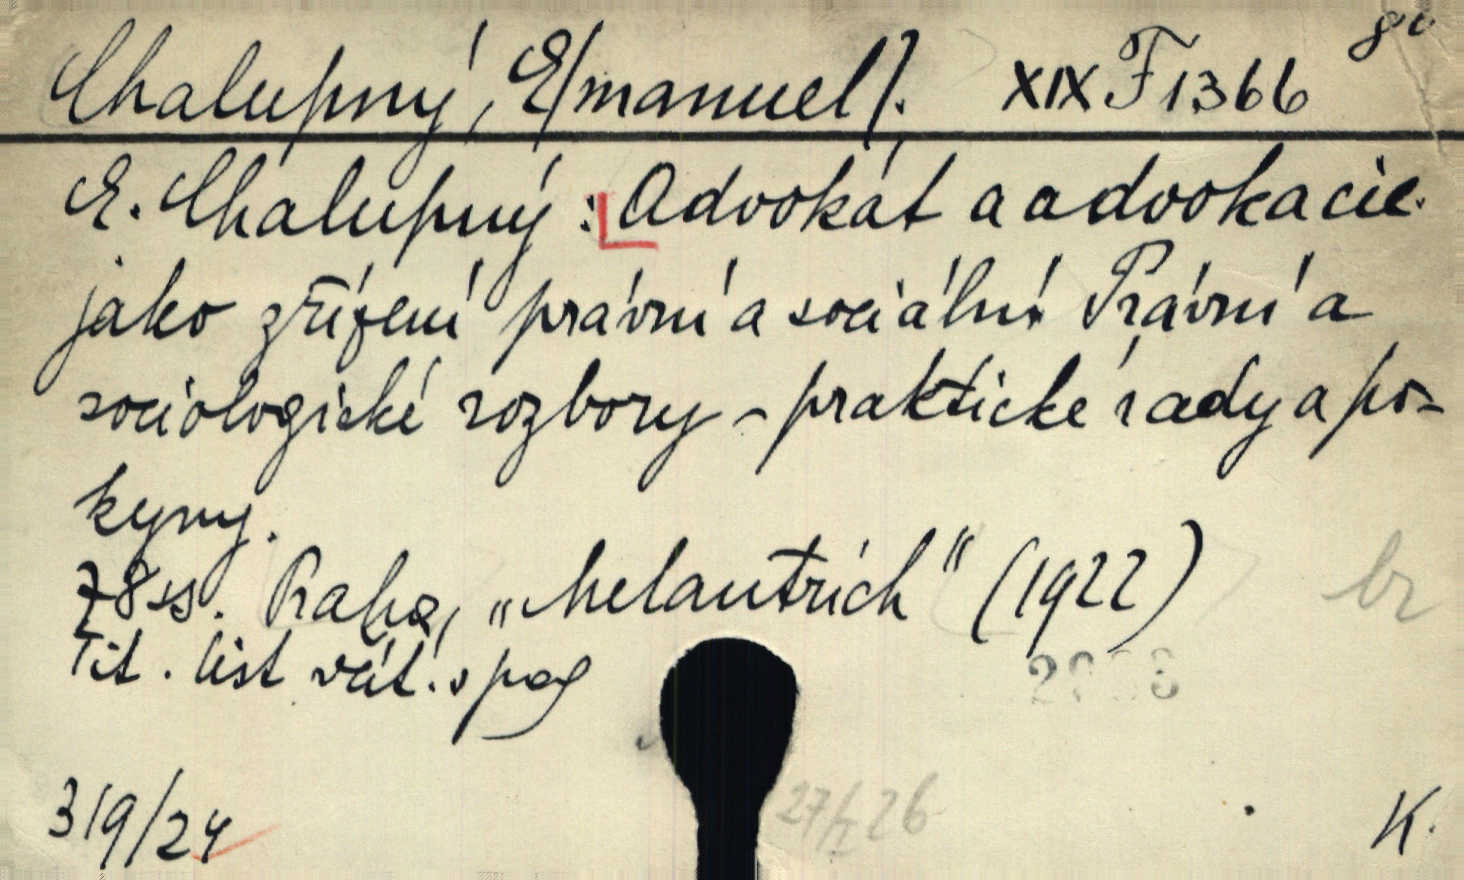 Chalupný, E/manuel/. XIX F 1366 8°
E. Chalupný: Advokát a advokacie
jako zřízení právní a sociální. Právní a
sociologické rozbory - praktické rady a po-
kyny.
78 ss. Praha, „Melantrich" (1922)
br
Tit. list věít. v pag
319/24
27/I 26
K.